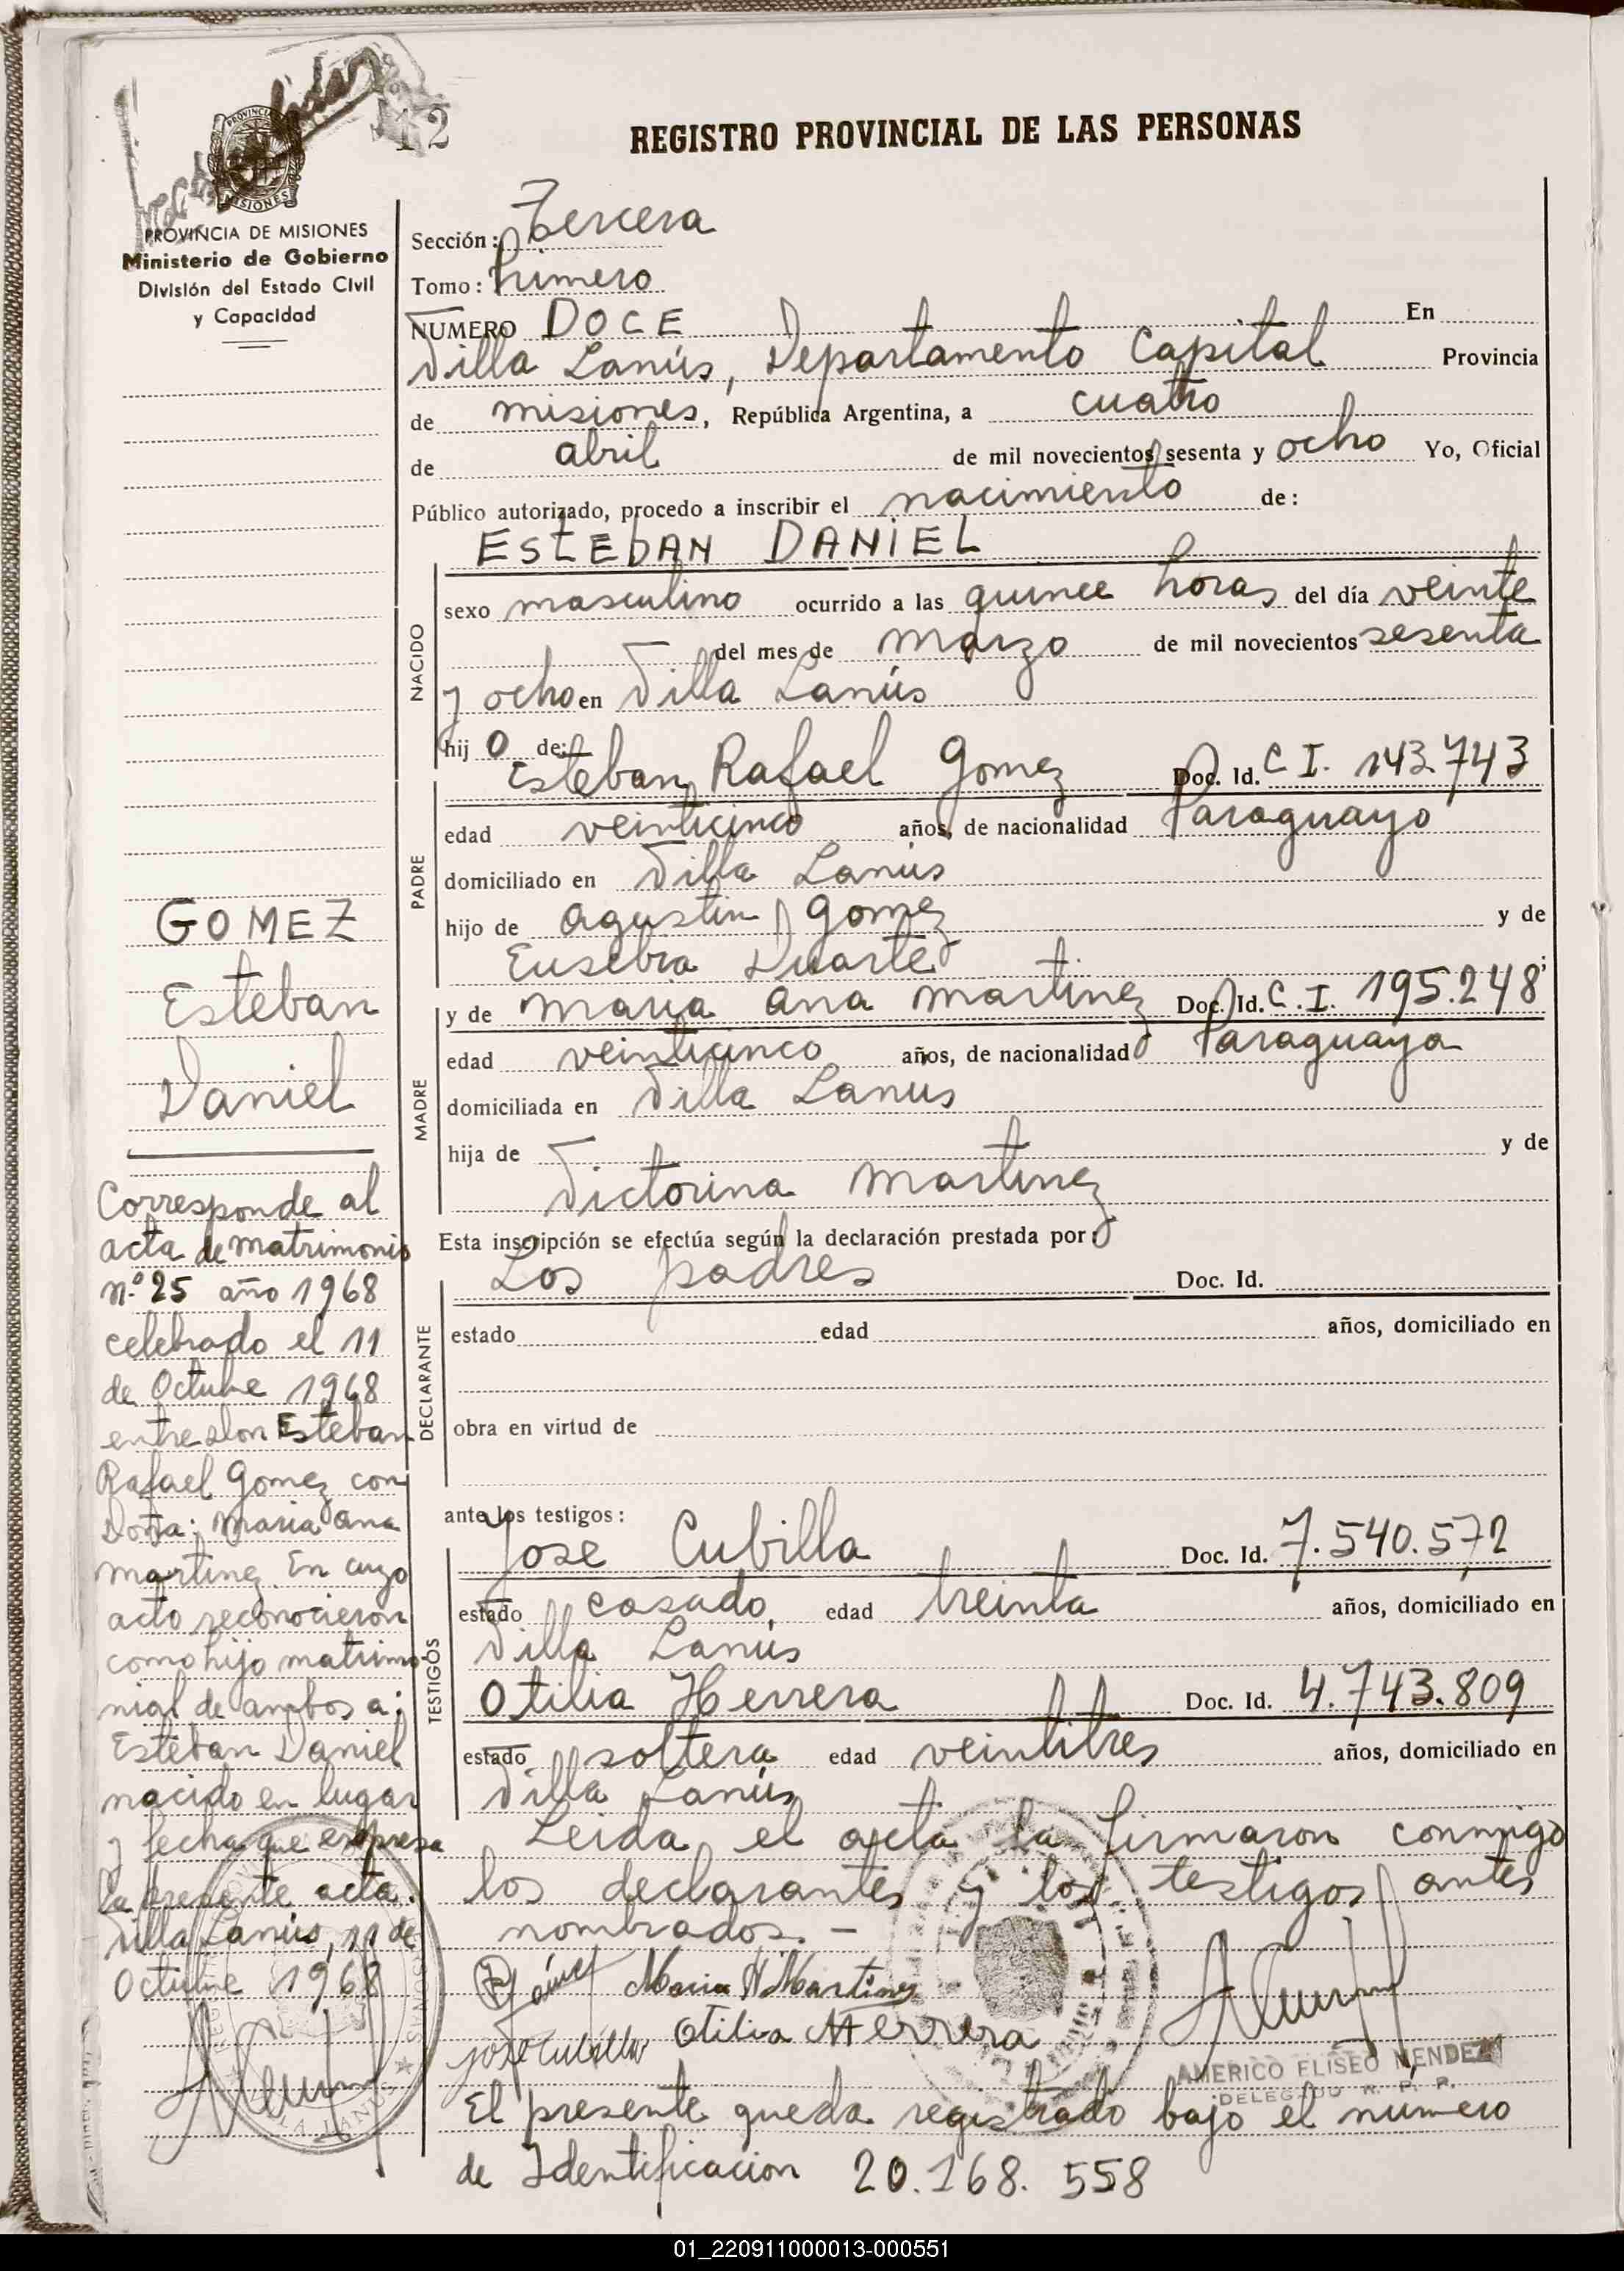 12
REGISTRO PROVINCIAL DE LAS PERSONAS
PROVINCIA DE MISIONES
Ministerio de Gobierno
División del Estado Civil
y Capacidad
Sección: Tercera
Tomo: Primero
NUMERO DOCE En
Villa Lanús, Departamento Capital Provincia
de misiones, República Argentina, a cuatro
de abril de mil novecientos sesenta y ocho Yo, Oficial
Público autorizado, procedo a inscribir el nacimiento de:
ESTEBAN DANIEL
NACIDO
sexo masculino ocurrido a las quince horas del día veinte
del mes de marzo de mil novecientos sesenta
y ocho en Villa Lanús
hijo de:
PADRE
Esteban Rafael Gomez Doc. Id. C I. 143.743
edad veinticinco años, de nacionalidad Paraguayo
domiciliado en Villa Lanús
hijo de Agustin Gomez y de
Eusebia Duarte
MADRE
y de Maria Ana Martinez Doc. Id. C. I. 195.248
edad veinticinco años, de nacionalidad Paraguaya
domiciliada en Villa Lanus
hija de y de
Victorina Martinez
Esta inscripción se efectúa según la declaración prestada por:
DECLARANTE
Los padres Doc. Id.
estado edad años, domiciliado en
obra en virtud de
ante los testigos:
TESTIGOS
Jose Cubilla Doc. Id. 7.540.572
estado casado, edad treinta años, domiciliado en
Villa Lanús
Otilia Herrera Doc. Id. 4.743.809
estado soltera edad veintitres años, domiciliado en
Villa Lanús
Leida el acta la firmaron conmigo
los declarantes y los testigos antes
nombrados. -
Maria A Martinez
Jose Cubilla Otilia Herrera
AMERICO ELISEO MENDEZ
DELEGADO R. P. P.
El presente queda registrado bajo el número
de Identificacion 20.168.558
GOMEZ
Esteban
Daniel
Corresponde al
acta de matrimonio
nº 25 año 1968
celebrado el 11
de Octubre 1968
entre don Esteban
Rafael Gomez con
Doña: Maria Ana
Martinez. En cuyo
acto reconocieron
como hijo matrimo-
nial de ambos a:
Esteban Daniel
nacido en lugar
y fecha que expresa
la presente acta.
Villa Lanús, 11 de
Octubre 1968
VILLA LANUS
01_220911000013-000551